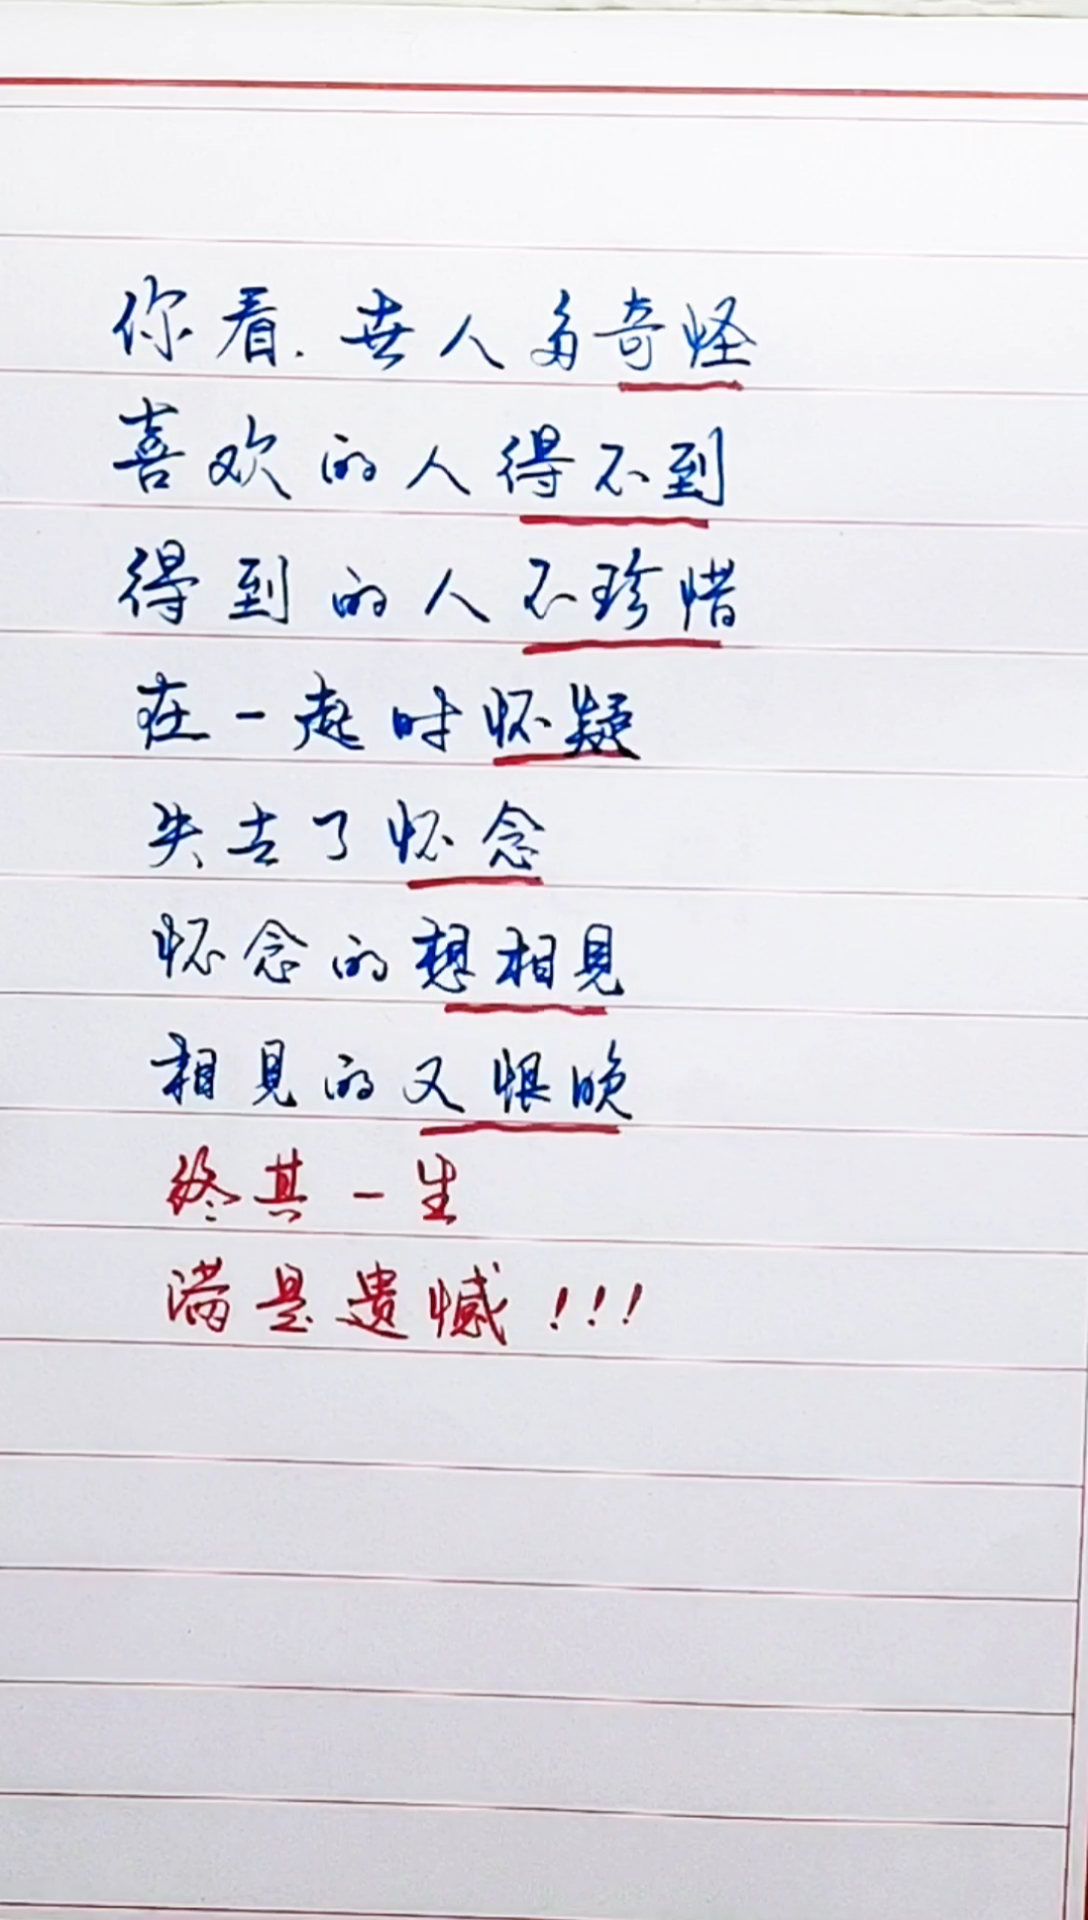 你看.世人多奇怪
喜欢的人得不到
得到的人不珍惜
在一起时怀疑
失去了怀念
怀念的想相見
相見的又恨晚
终其一生
满是遗憾!!!